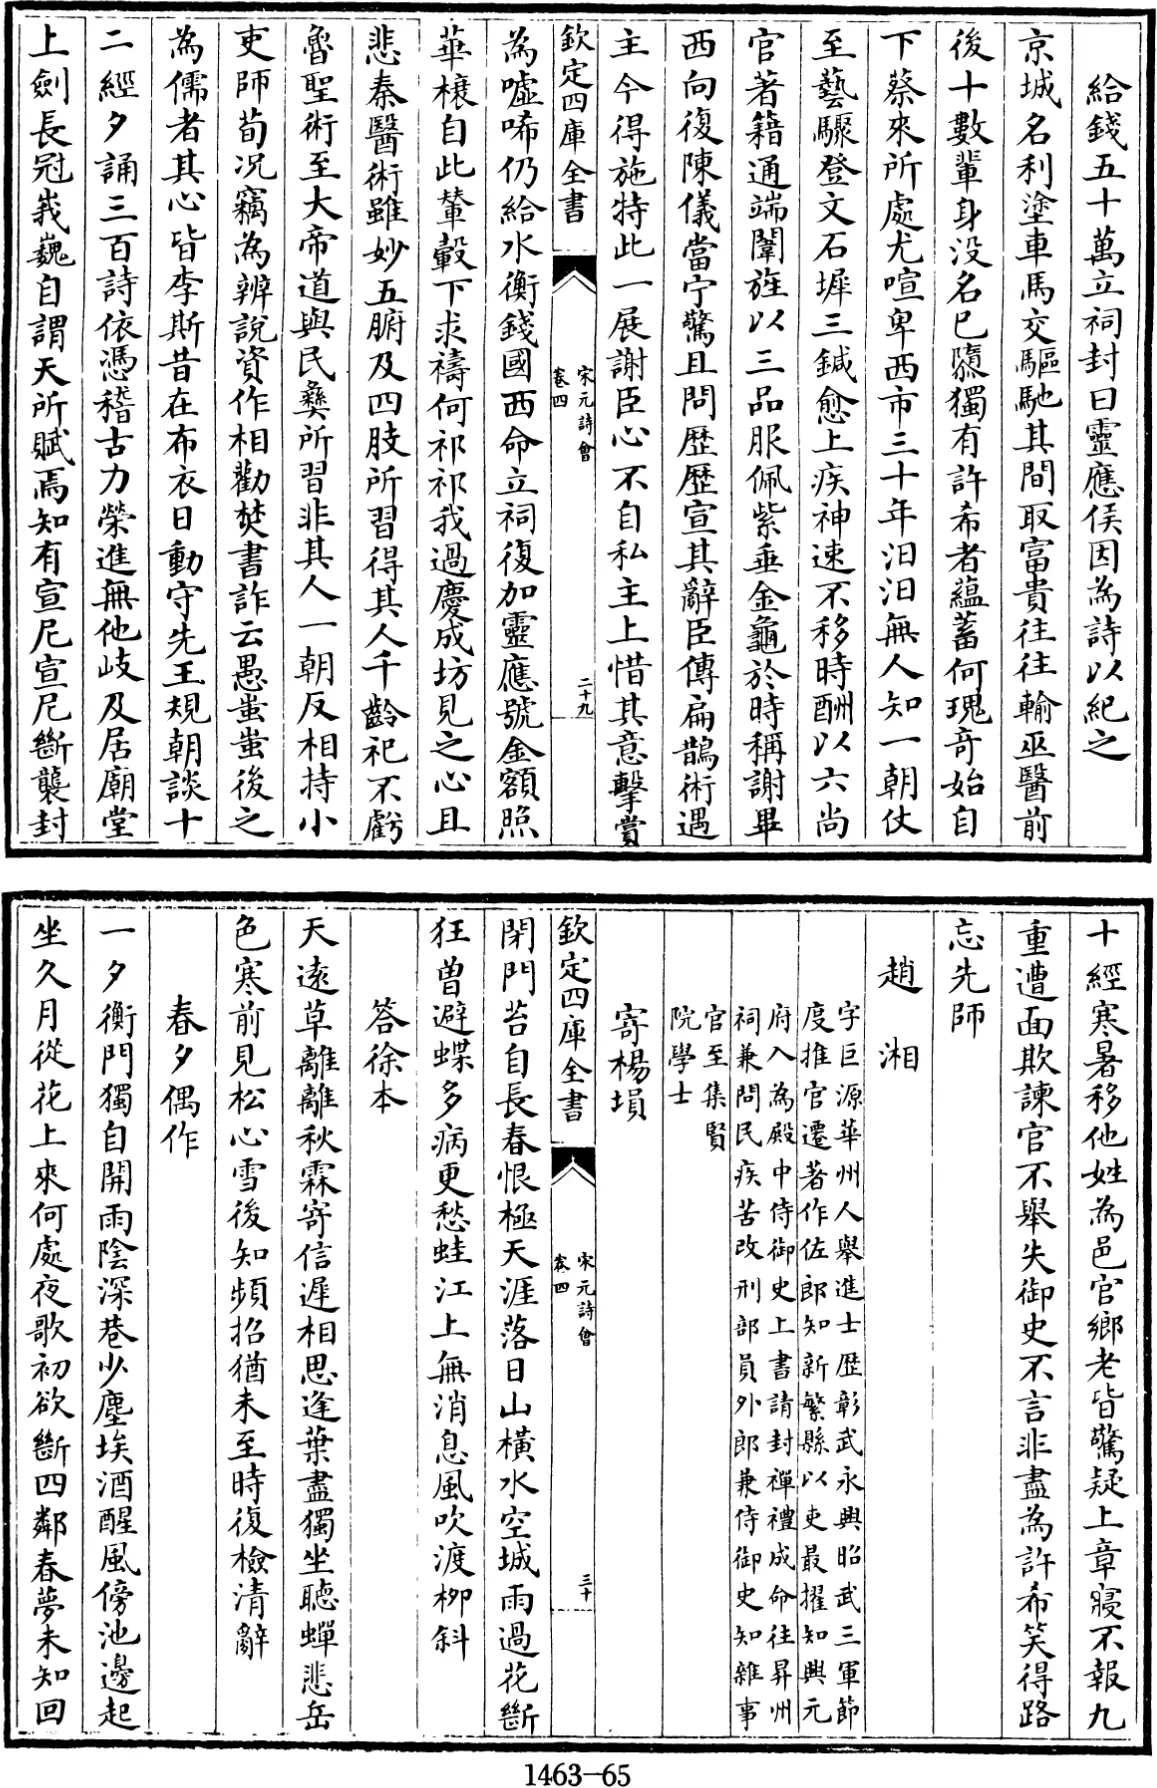 給錢五十萬立祠封曰靈應侯因為詩以紀之
京城名利塗車馬交驅馳其間取富貴往往輸巫醫前
後十數輩身没名已隳獨有許希者藴蓄何瑰奇始自
下蔡來所處尤喧卑西市三十年汨汨無人知一朝仗
至藝驟登文石墀三鍼愈上疾神速不移時酬以六尚
官著籍通端闈旌以三品服佩紫垂金龜於時稱謝畢
西向復陳儀當宁驚且問歴歴宣其辭臣傳扁鵲術遇
主今得施特此一展謝臣心不自私主上惜其意擊賞
欽定四庫全書
宋元詩會
卷四
二十九
為嘘唏仍給水衡錢國西命立祠復加靈應號金額照
華榱自此輦轂下求禱何祁祁我過慶成坊見之心且
悲秦醫術雖妙五腑及四肢所習得其人千齡祀不虧
魯聖術至大帝道與民彝所習非其人一朝反相持小
吏師荀况竊為辨說資作相勸焚書詐云愚蚩蚩後之
為儒者其心皆李斯昔在布衣日動守先王規朝談十
二經夕誦三百詩依憑稽古力榮進無他岐及居廟堂
上劍長冠峩巍自謂天所賦焉知有宣尼宣尼斷襲封
十經寒暑移他姓為邑官鄉老皆驚疑上章寢不報九
重遭面欺諫官不舉失御史不言非盡為許希笑得路
忘先師
趙湘
字巨源華州人舉進士歴彰武永興昭武三軍節
度推官遷著作佐郎知新繁縣以吏最擢知興元
府入為殿中侍御史上書請封禪禮成命往昇州
祠兼問民疾苦改刑部員外郎兼侍御史知雜事
官至集賢
院學士
寄楊塤
欽定四庫全書
宋元詩會
卷四
三十
閉門苔自長春恨極天涯落日山橫水空城雨過花斷
狂曽避蝶多病更愁蛙江上無消息風吹渡栁斜
答徐本
天遠草離離秋霖寄信遲相思逢葉盡獨坐聽蟬悲岳
色寒前見松心雪後知頻招猶未至時復檢清辭
春夕偶作
一夕衡門獨自開雨陰深巷少塵埃酒醒風傍池邊起
坐久月從花上來何處夜歌初欲斷四鄰春夢未知回
1463—65